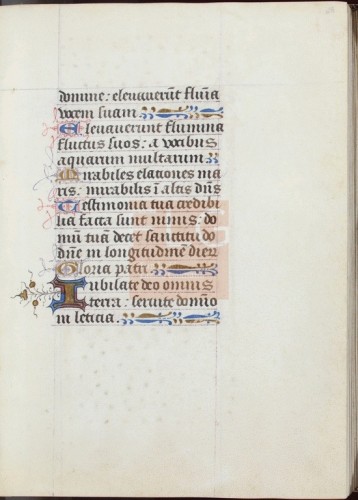 domine: elevaverūt flum̄a
vocem suam.
Elevaverunt flumina
fluctus suos: a vocibus
aquarum multarum
Mirabiles elaciones ma
ris: mirabilis ī altis dn̄s
Testimonia tua credibi
lia facta sunt nimis: do
mū tuā decet sanctitudo
dn̄e in longitudinē dierꝝ
Gloria patri.
Iubilate deo omnis
terra: servite domīo
in leticia.